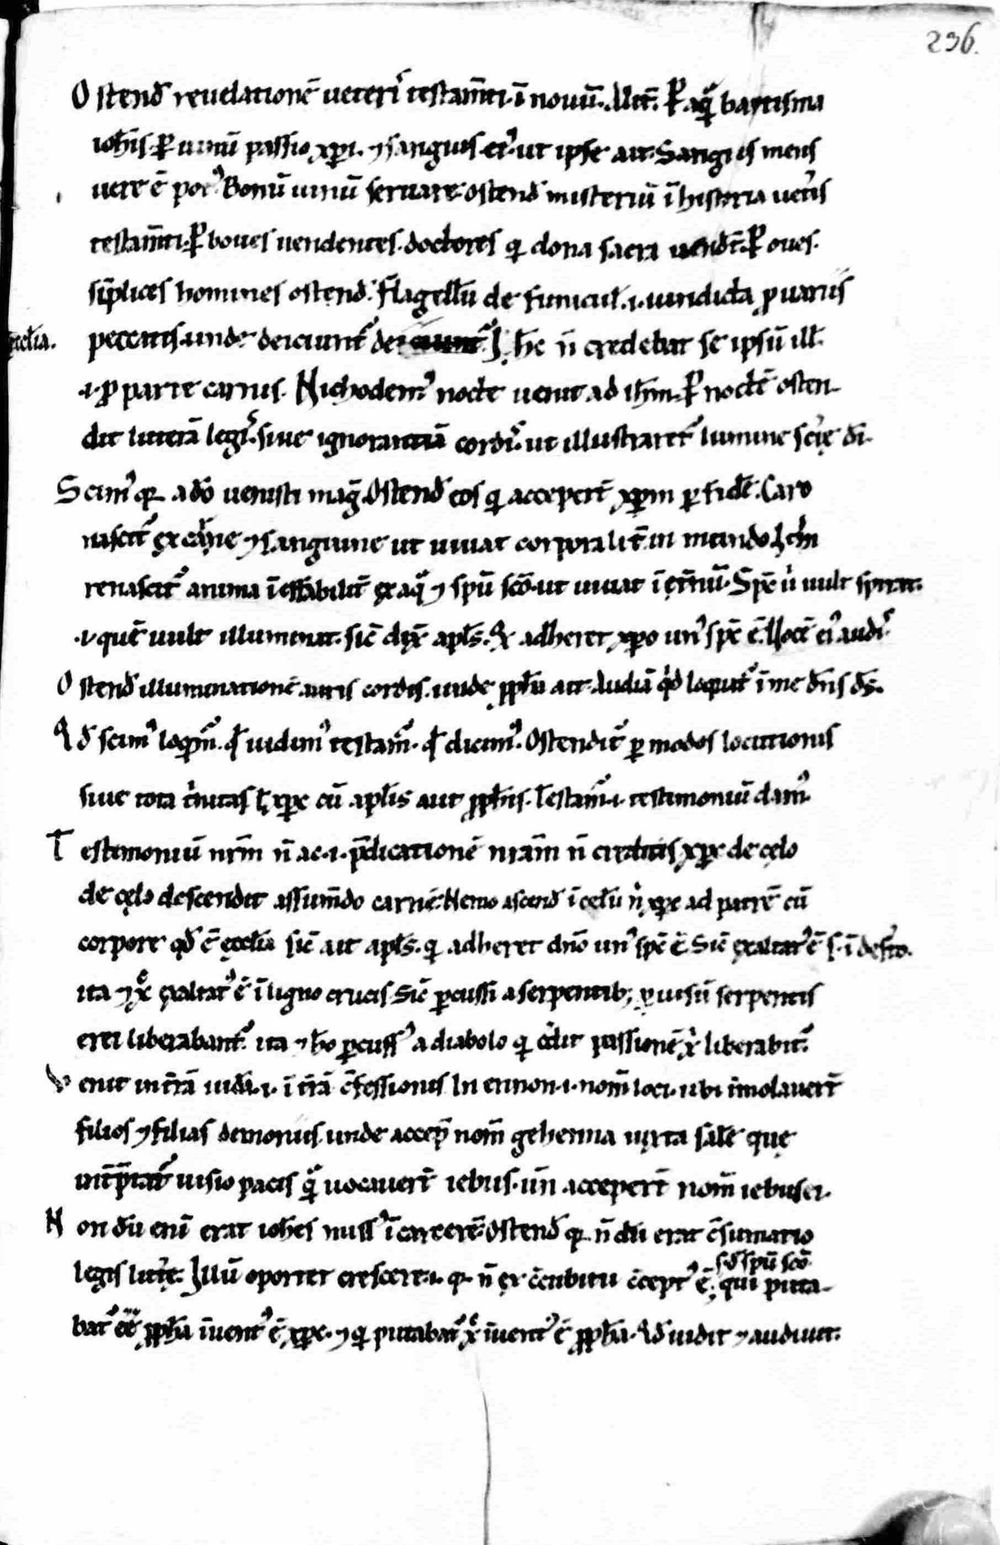 236.
Ostend̄ reuelationē ueterı᷒ testam̄ti · ī nouū · Alit̄ · P aq̄ baptisma
ioh̄is · P uinū passio xp̄i · ⁊ sanguis · ei᷒ · ut ipse ait · Sanguis meus
uere ē pot᷒ Bonū uinū seruare · ostend̄ misteriū ī historia uet̄is
testam̄ti · P boues uendentes · doctores q̄ dona sacra uendēt · P oues ·
sīplices homines ostend̄ · Flagellū de funicul̄ · i · uindicta p uariis
ęccl̄ia ·
peccatis · unde deiciunt᷒ Ih̄c n̄ credebat se ipsū ill̄
· i · p parte carnis · Nichodem᷒ nocte uenit ad ih̄m · P noctē osten-
dit litterā legı᷒ · siue ignorantiā cordı᷒ · ut illustraret᷒ lumine scīę dī ·
Scim᷒ q̄ a dō uenisti maḡ · Ostend̄ eos q̄ acceper̄t xp̄m p fidē · Caro
nascit᷒ ex carne ⁊ sanguine ut uiuat corporalit̄ in mundo
renascit᷒ anima īeffabilit̄ ex aq̄ ⁊ sp̄u sc̄o · ut uiuat ī et̄nū · Sp̄c u̇ uult spirat ·
· i · quē uult illuminat · sic̄ dix̄ apl̄s · Q̇ adheret xp̄o un᷒ sp̄c ē · Uocē ei᷒ audı᷒
Ostend̄ illuminationē auris cordis · unde pph̄a ait · Audiā q̇d loquat᷒ ī me dn̄s ds̄ ·
Qd̄ scim᷒ loq̄m᷒ · q̄d uidim᷒ testam᷒ · q̄d dicim᷒ · Ostendit᷒ p modos locutionis
siue tota t̄nitas ł xp̄c cū apl̄is aut pph̄is · Testam᷒ · i · testimoniū dam᷒ ·
Testimoniū nr̄m n̄ ac · i · p̄dicationē nr̄am n̄ creditis xp̄c de cęlo
de cęlo descendit assum̄do carnē · Nemo ascend̄ ī cęlū n̄ xp̄c ad patrē cū
corpore qd̄ ē ęccl̄ia sic̄ ait apl̄s · q̄ adheret dn̄o un᷒ sp̄c ē · Sic̄ exaltat᷒ ē s · ī deser̄to ·
ita ⁊ xp̄c exaltat᷒ ē ī ligno crucis Sic̄ p̄cussi a serpentib; p uisū serpentis
erei liberabant᷒ ita ⁊ hō p̄cuss᷒ a diabolo q̄ c̄dit passionē xp̄i liberabit᷒
Venit in t̄rā iudā · i · ī t̄rā c̄fessionis In ennon · i · nom̄ loci · ubi īmolauer̄t
filios ⁊ filias demoniis unde accep̄ nom̄ gehenna iuxta salē que
int̄p̄tat᷒ uisio pacis q̄ uocauer̄t iebus · un̄ acceper̄t nom̄ iebusei ·
Non dū enī erat ioh̄es miss᷒ ī carcerē · Ostend̄ q̄ n̄ dū erat c̄sumatio
sȝ d̄ sp̄u sc̄o
legis litt̄ę · Illū oportet crescere · i · q̄ n̄ ex c̄cubitu c̄cept᷒ ē · qui puta-
bat᷒ ēē pph̄a īuent᷒ ē xp̄c · ⁊ q̄ putabat᷒ xp̄c īuent᷒ ē pph̄a · Qd̄ uidit ⁊ audiuit ·